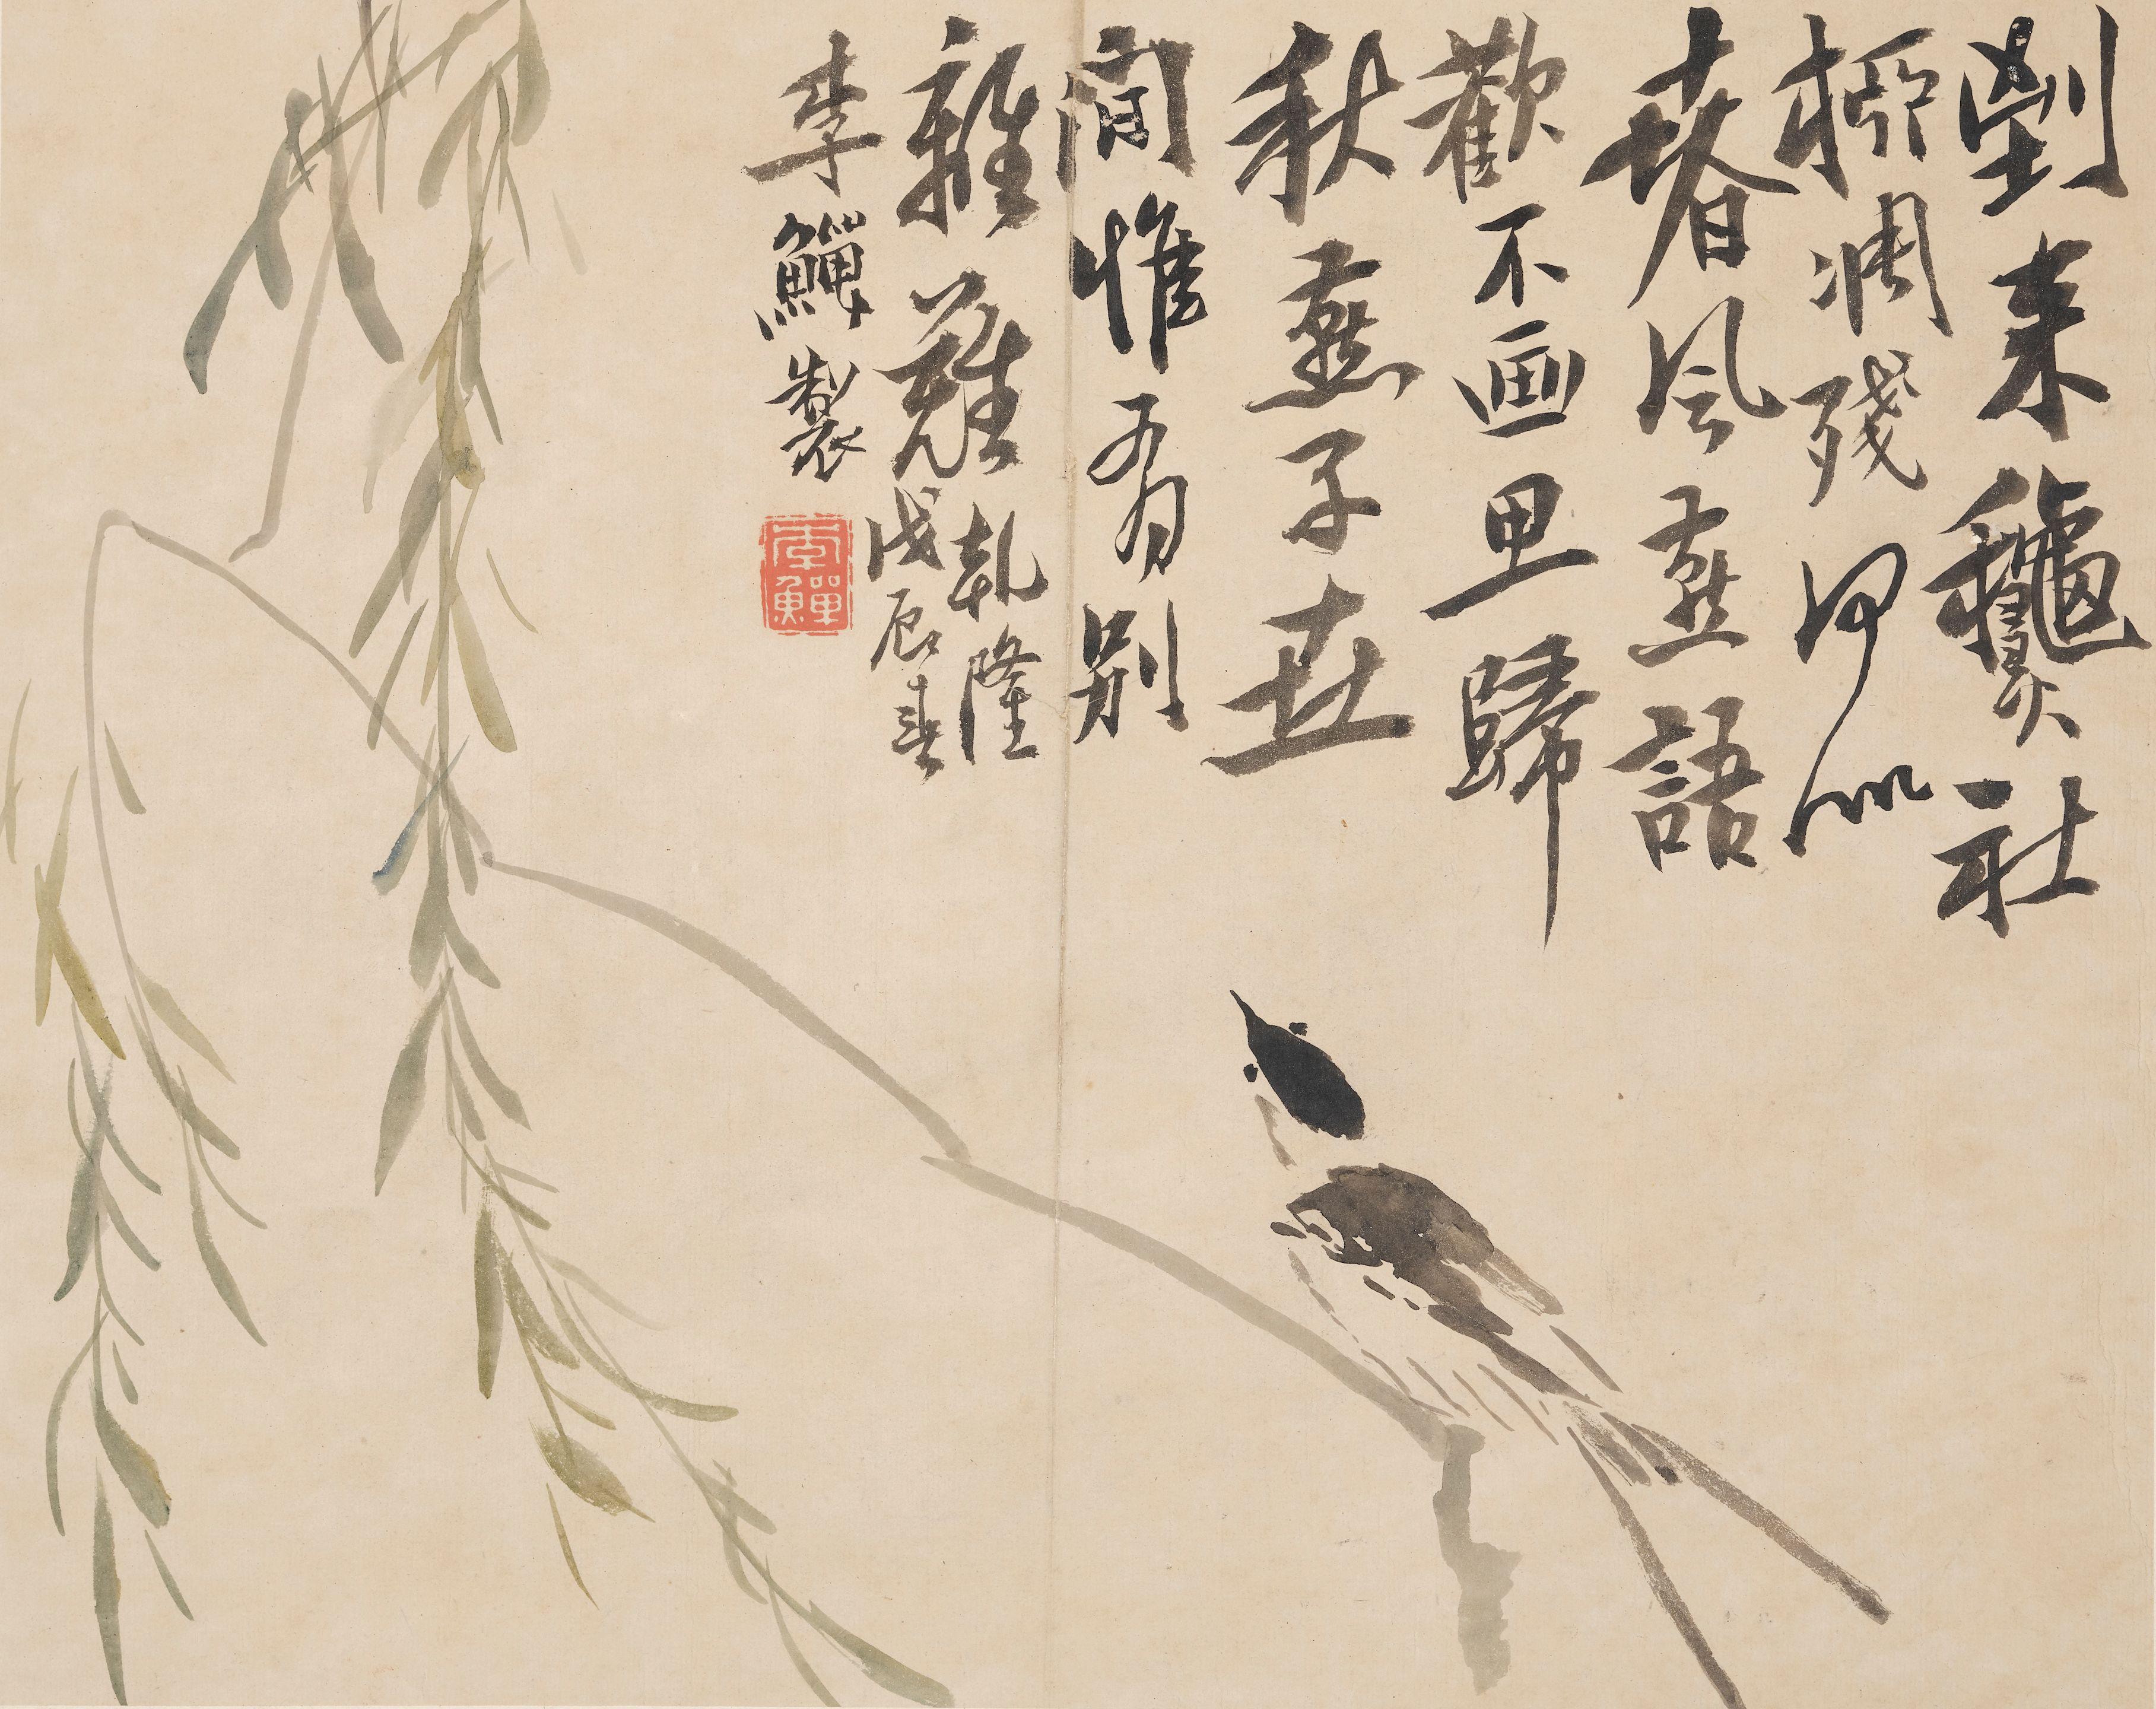 到來龝社
柳凋殘何似
春風燕語
歡不画思歸
秋燕子世
間惟有別
離難乾隆
戊辰春
李鱓製
李鱓